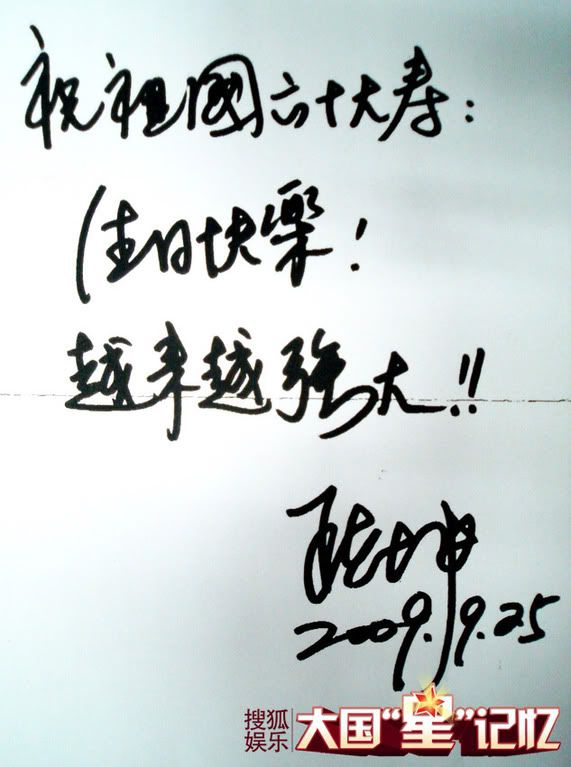 祝祖國六十大寿：
生日快樂！
越来越強大!!
陈坤
2009.9.25
搜狐
娱乐
大国“星”记忆